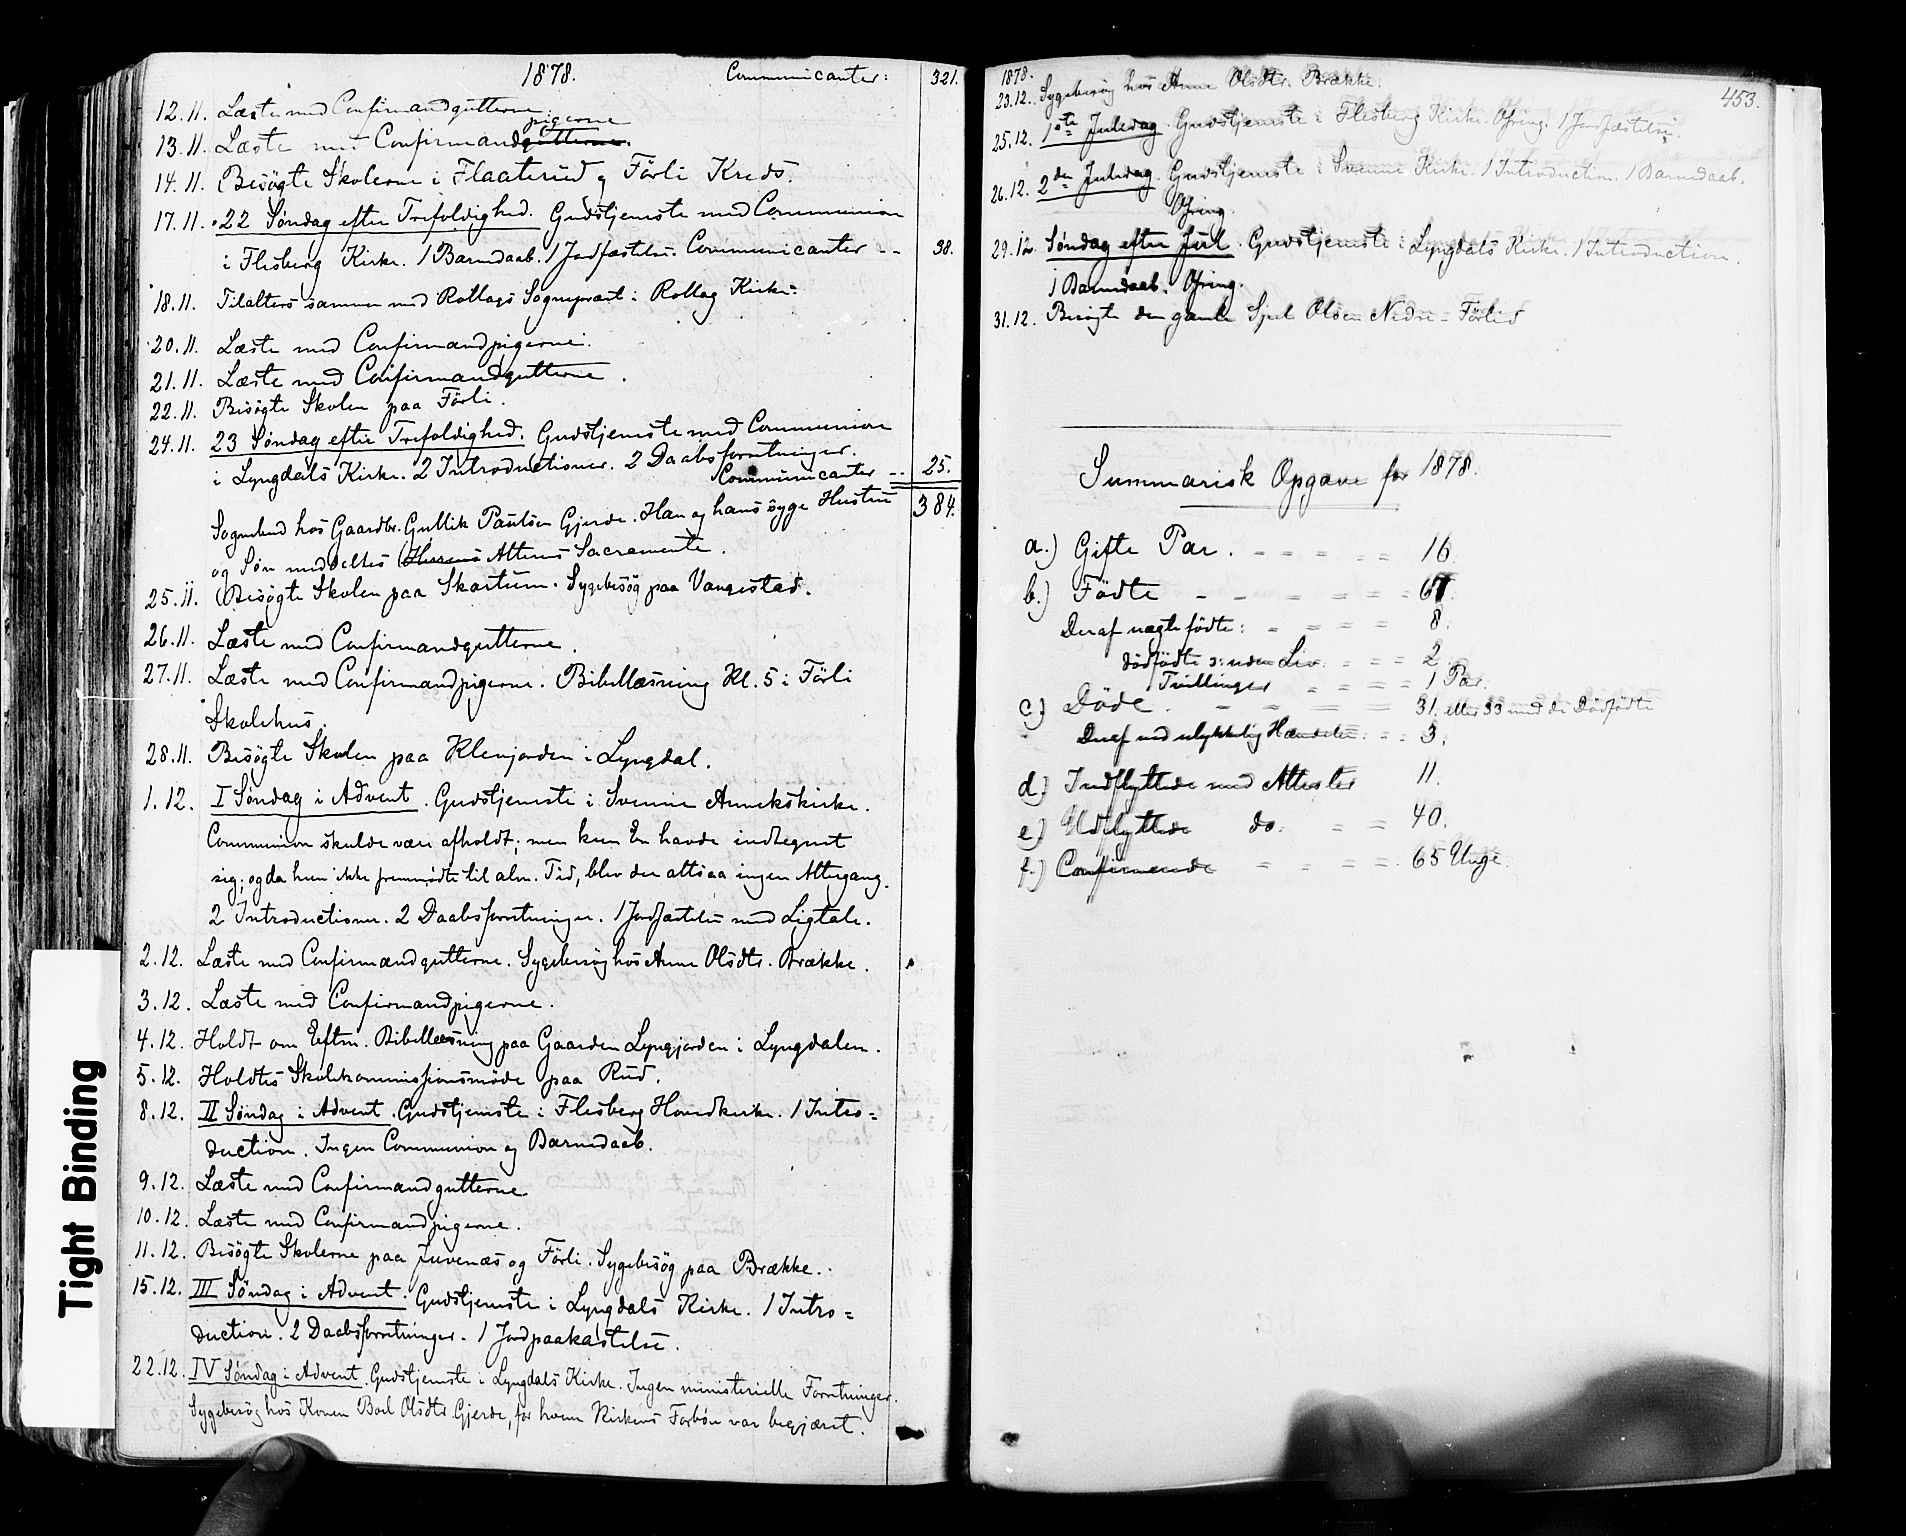 1878. Communicanter: 321.
12.11. Læste med Confirmandgutterne.
pigerne
13.11. Læste med Confirmandgutterne.
14.11. Besøgte Skolerne i Flaaterud og Førli Kreds.
17.11. 22 Søndag efter Trefoldighed. Gudstjeneste med Communion
i Flesberg Kirke. 1 Barnedaab. 1 Jordfæstelse. Communicanter -- 38.
18.11. Tilalters sammen med Rollags Sognepræst i Rollag Kirke.
20.11. Læste med Confirmandpigerne.
21.11. Læste med Confirmandgutterne.
22.11. Besøgte Skolen paa Førli.
24.11. 23 Søndag efter Trefoldighed. Gudstjeneste med Communion
i Lyngdals Kirke. 2 Introductioner. 2 Daabsforretninger.
Communicanter -- 25.
384.
Sognebud hos Gaardbr. Gullik Paulsen Gjerde. Han og hans syge Hustru
og Søn meddeltes Herrens Alterens Sacramente.
25.11. Besøgte Skolen paa Skartum. Sygebesøg paa Vangestad.
26.11. Læste med Confirmandgutterne.
27.11. Læste med Confirmandpigerne. Bibellæsning Kl. 5 i Førli
Skolehus.
28.11. Besøgte Skolen paa Klevjorden i Lyngdal.
1.12. I Søndag i Advent. Gudstjeneste i Svenne Annekskirke.
Communion skulde være afholdt; men kun En havde indtegnet
sig; og da hun ikke fremmødte til alm. Tid, blev der altsaa ingen Altergang.
2 Introductioner. 2 Daabsforretninger. 1 Jordfæstelse med Ligtale.
2.12. Læste med Confirmandgutterne. Sygebesøg hos Anne Olsdtr. Brække.
3.12. Læste med Confirmandpigerne.
4.12. Holdt om Eftm. Bibellæsning paa Gaarden Lyngjorden i Lyngdalen.
5.12. Holdtes Skolekommissionsmøde paa Rud.
8.12. II Søndag i Advent. Gudstjeneste i Flesberg Hovedkirke. 1 Intro=
duction. Ingen Communion og Barnedaab.
9.12. Læste med Confirmandgutterne
10.12. Læste med Confirmandpigerne.
11.12. Besøgte Skolerne paa Juvenæs og Førli. Sygebesøg paa Brække.
15.12. III Søndag i Advent. Gudstjeneste i Lyngdals Kirke. 1 Intro=
duction. 2 Daabsforretninger. 1 Jordpaakastelse.
22.12. IV Søndag i Advent. Gudstjeneste i Lyngdals Kirke. Ingen ministerielle Forretninger.
Sygebesøg hos Konen Boel Olsdtr. Gjerde, for hvem Kirkens Forbøn var begjæret.
Tight Binding
1878.
453.
23.12. Sygebesøg hos Anne Olsdtr. Brække.
25.12. 1ste Juledag. Gudstjeneste i Flesberg Kirke. Ofring. 1 Jordfæstelse.
26.12. 2den Juledag. Gudstjeneste i Svenne Kirke. 1 Introduction. 1 Barnedaab.
Ofring.
29.12. Søndag efter Jul. Gudstjeneste i Lyngdals Kirke. 1 Introduction.
1 Barnedaab. Ofring.
31.12. Besøgte den gamle Sjul Olsen Nedre-Førlid
Summarisk Opgave for 1878.
a.) Gifte Par. - - - - - 16
b.) Fødte - - - - - - 67
Deraf uægte fødte: - - - - 8.
dødfødte ɔ: uden Liv. - - - 2
Tvillinger - - - - 1 Par.
c.) Døde. - - - - - 31. eller 33 med de Dødfødte
Deraf ved ulykkelig Hændelse. - - 3.
d.) Indflyttede med Attester 11.
e.) Udflyttede do. - - 40.
f.) Confirmerede - - - - 65 Unge.